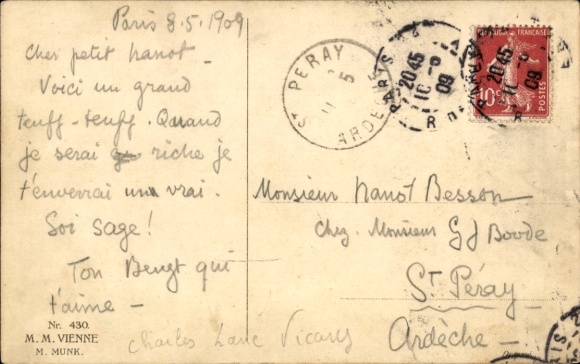 Paris 8.5.1909
Cher petit Nanot -
Voici un grand
teuff-teuff. Quand
je serai riche je
t'enverrai un vrai.
Soi sage!
Ton Bengt qui
t'aime -
Nr. 430.
M. M. VIENNE
M. MUNK.
ST PERAY
5
ARDECHE
PARIS
20 45
10 -5
09
R
RÉPUBLIQUE FRANÇAISE
10c
POSTES
20 45
09
R
Monsieur Nanot Besson
Chez Monsieur G J
St Péray
Ardèche -
Charles Vicary